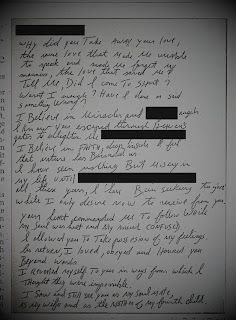 Why did you Take Away your love,
the same love that made me unable
to speak and made me forget my
manners, the love that served me?
Tell me, Did I come To Short?
Wasn't I enough? Have I done or said
something wrong?
I Believe in Miracles and angels
I know you escaped through Heaven's
gates to enlighten me
I Believe in FAITH, deep inside I feel
that
I have seen nothing But always in
my life until
All these years, I have Been seeking To give
while I only desire Now to receive from you.
Your light commanded me To follow
My soul was hurt and my mind CONFUSED
I allowed you To Take possession of my feelings
In return, I loved, obeyed and Honored you
Beyond words.
I revealed myself To you in ways from which I
Thought they were impossible.
I Saw and STILL see you as my soul mate,
As my wife and as the MOTHER of my fourth child.